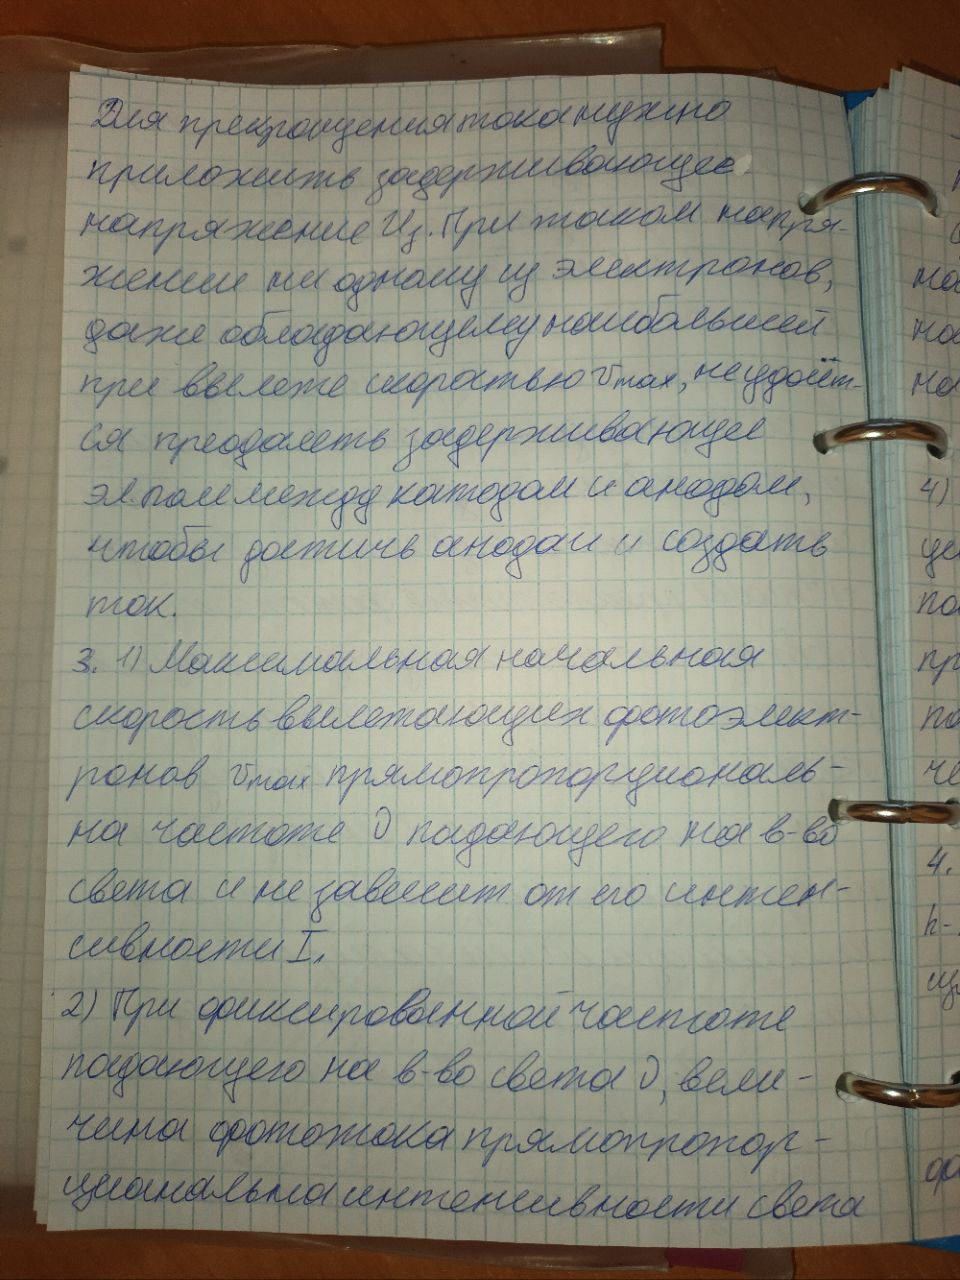 Для прекращения тока нужно
приложить задерживающее
напряжение Uз. При таком напря-
жении ни одному из электронов,
даже обладающему наибольшей
при вылете скоростью υmax, не удаёт-
ся преодолеть задерживающее
эл. поле между катодом и анодом,
чтобы достичь анода и создать
ток.
3. 1) Максимальная начальная
скорость вылетающих фотоэлект-
ронов υmax прямопропорциональ-
на частоте ν падающего на в-во
света и не зависит от его интен-
сивности I.
2) При фиксированной частоте
падающего на в-во света ν, вели-
чина фототока прямопропор-
циональна интенсивности света
4)
4.
h-